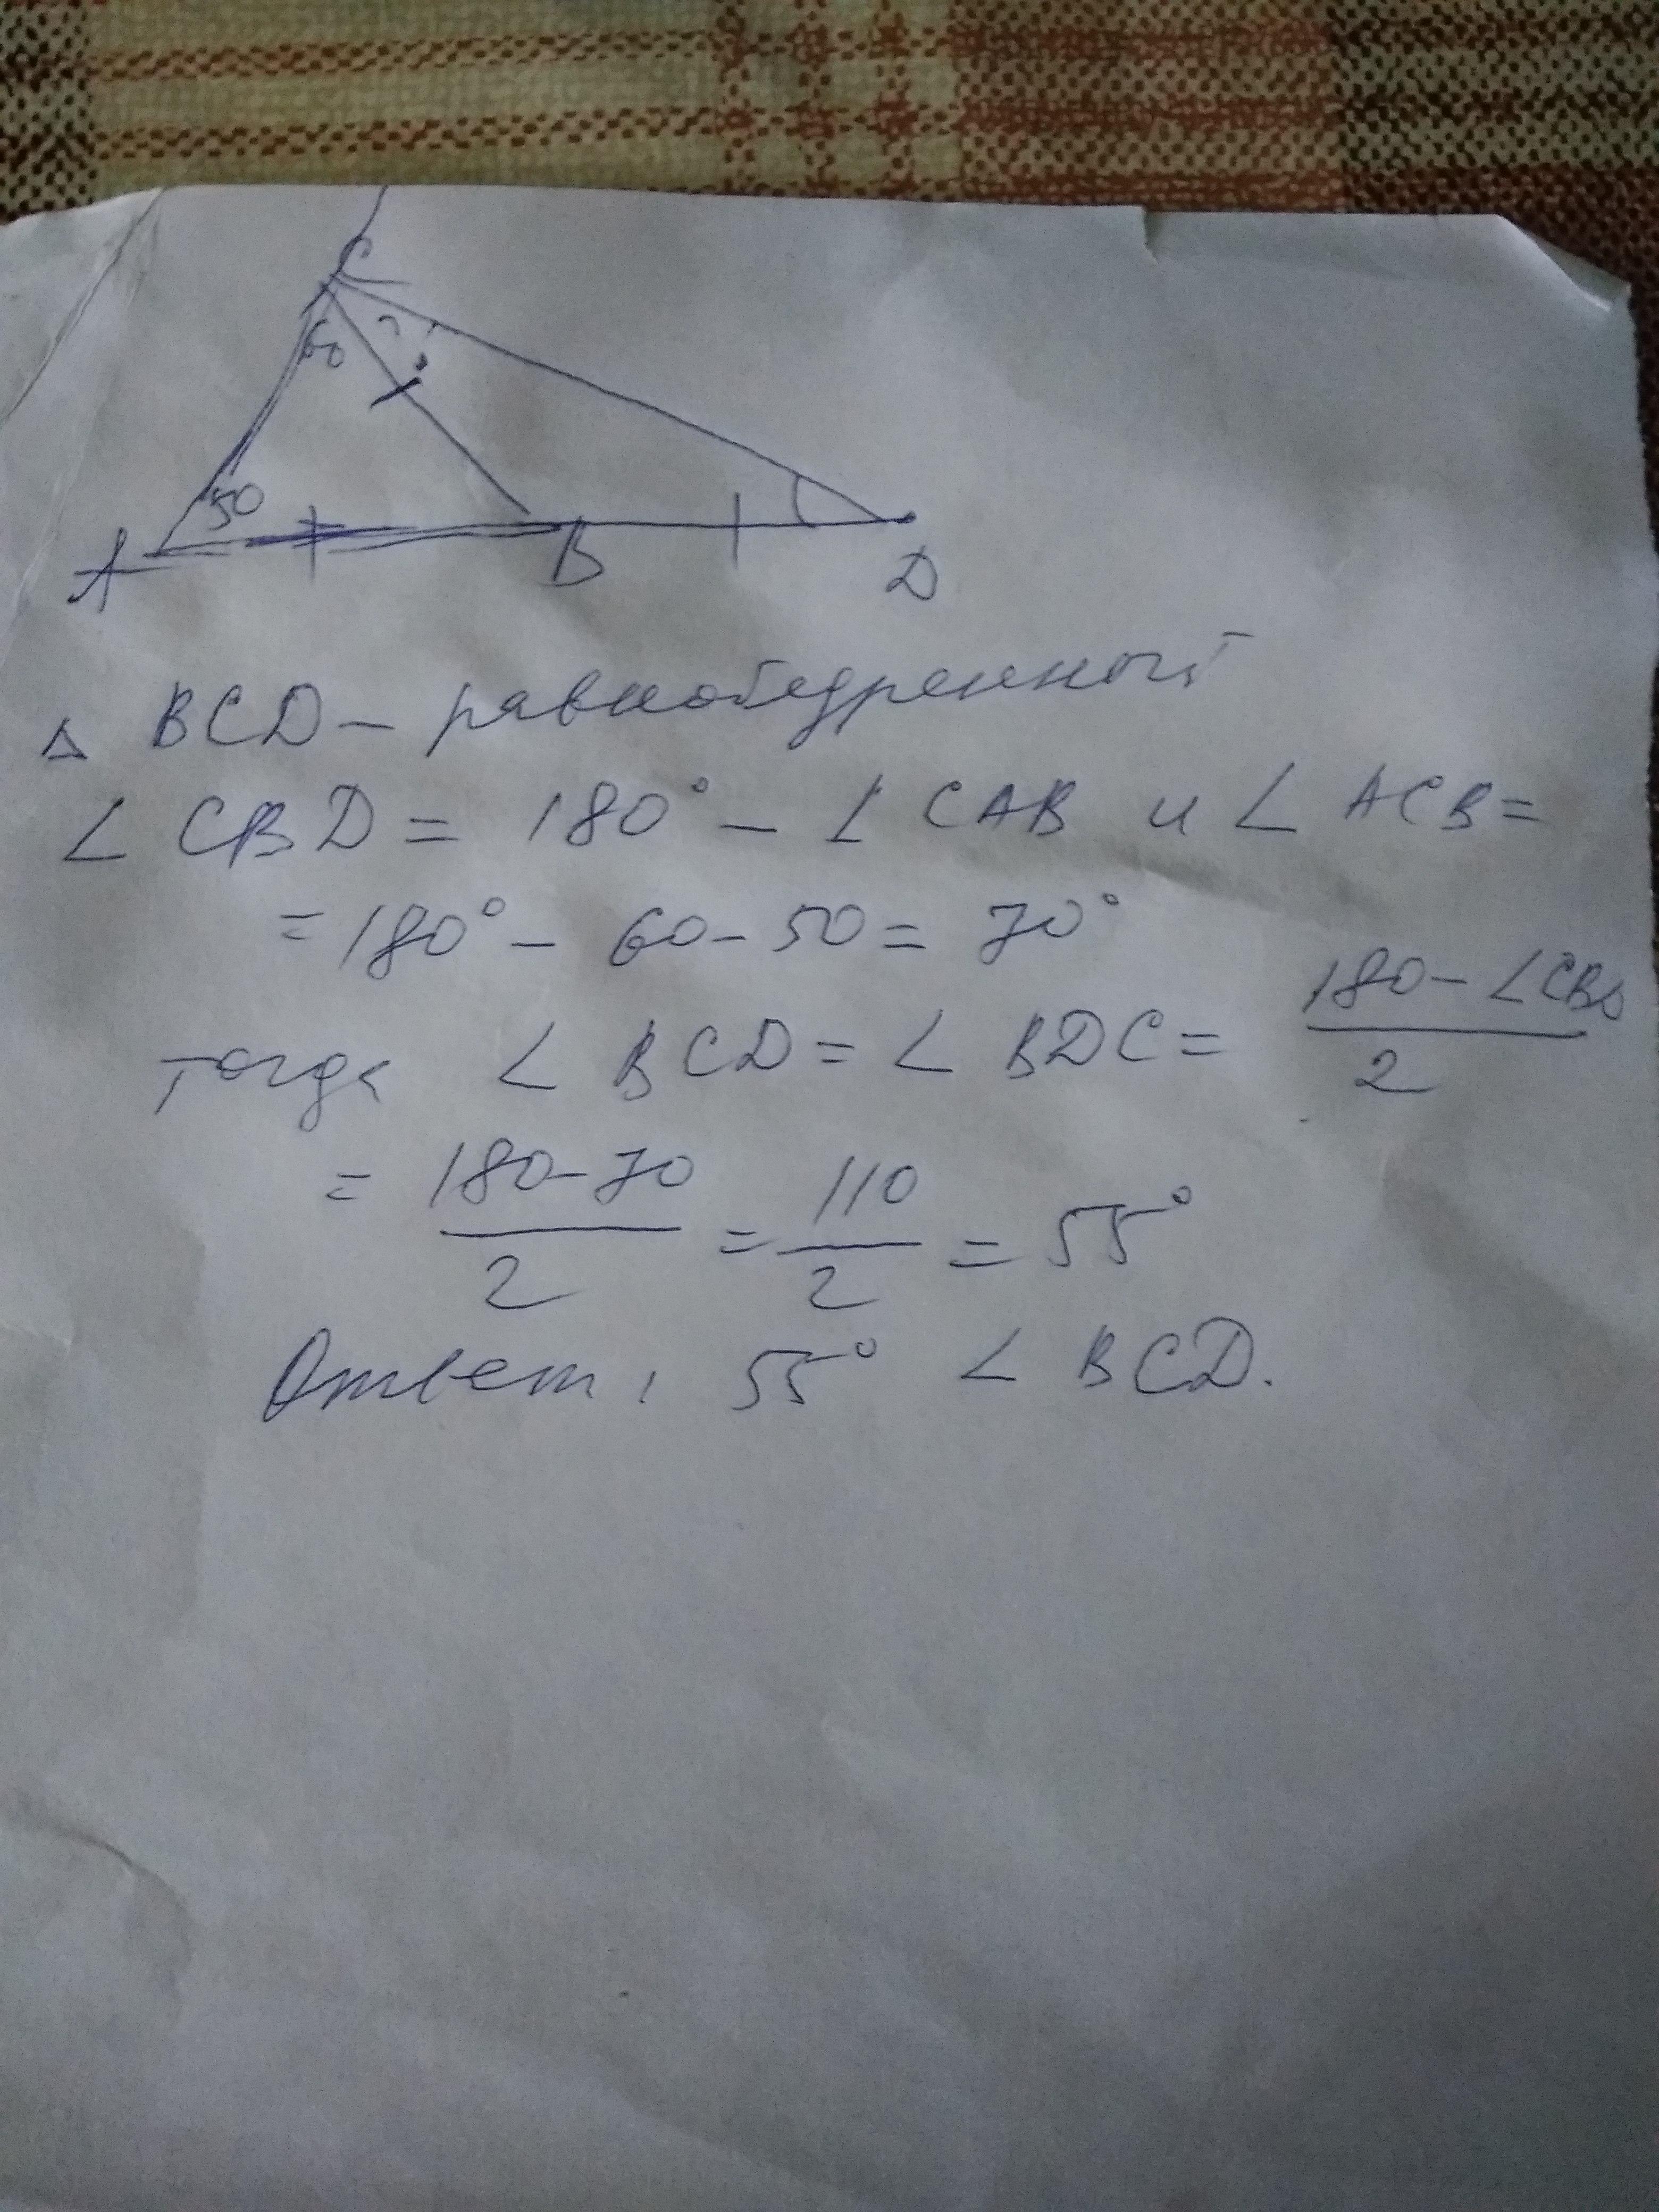 C
60 ?
50
A B D
△ BCD - равнобедренный
∠ CBD = 180° - ∠ CAB и ∠ ACB =
= 180° - 60 - 50 = 70°
тогда ∠ BCD = ∠ BDC = (180 - ∠CBD)/2
= (180-70)/2 = 110/2 = 55°
Ответ: 55° ∠ BCD.